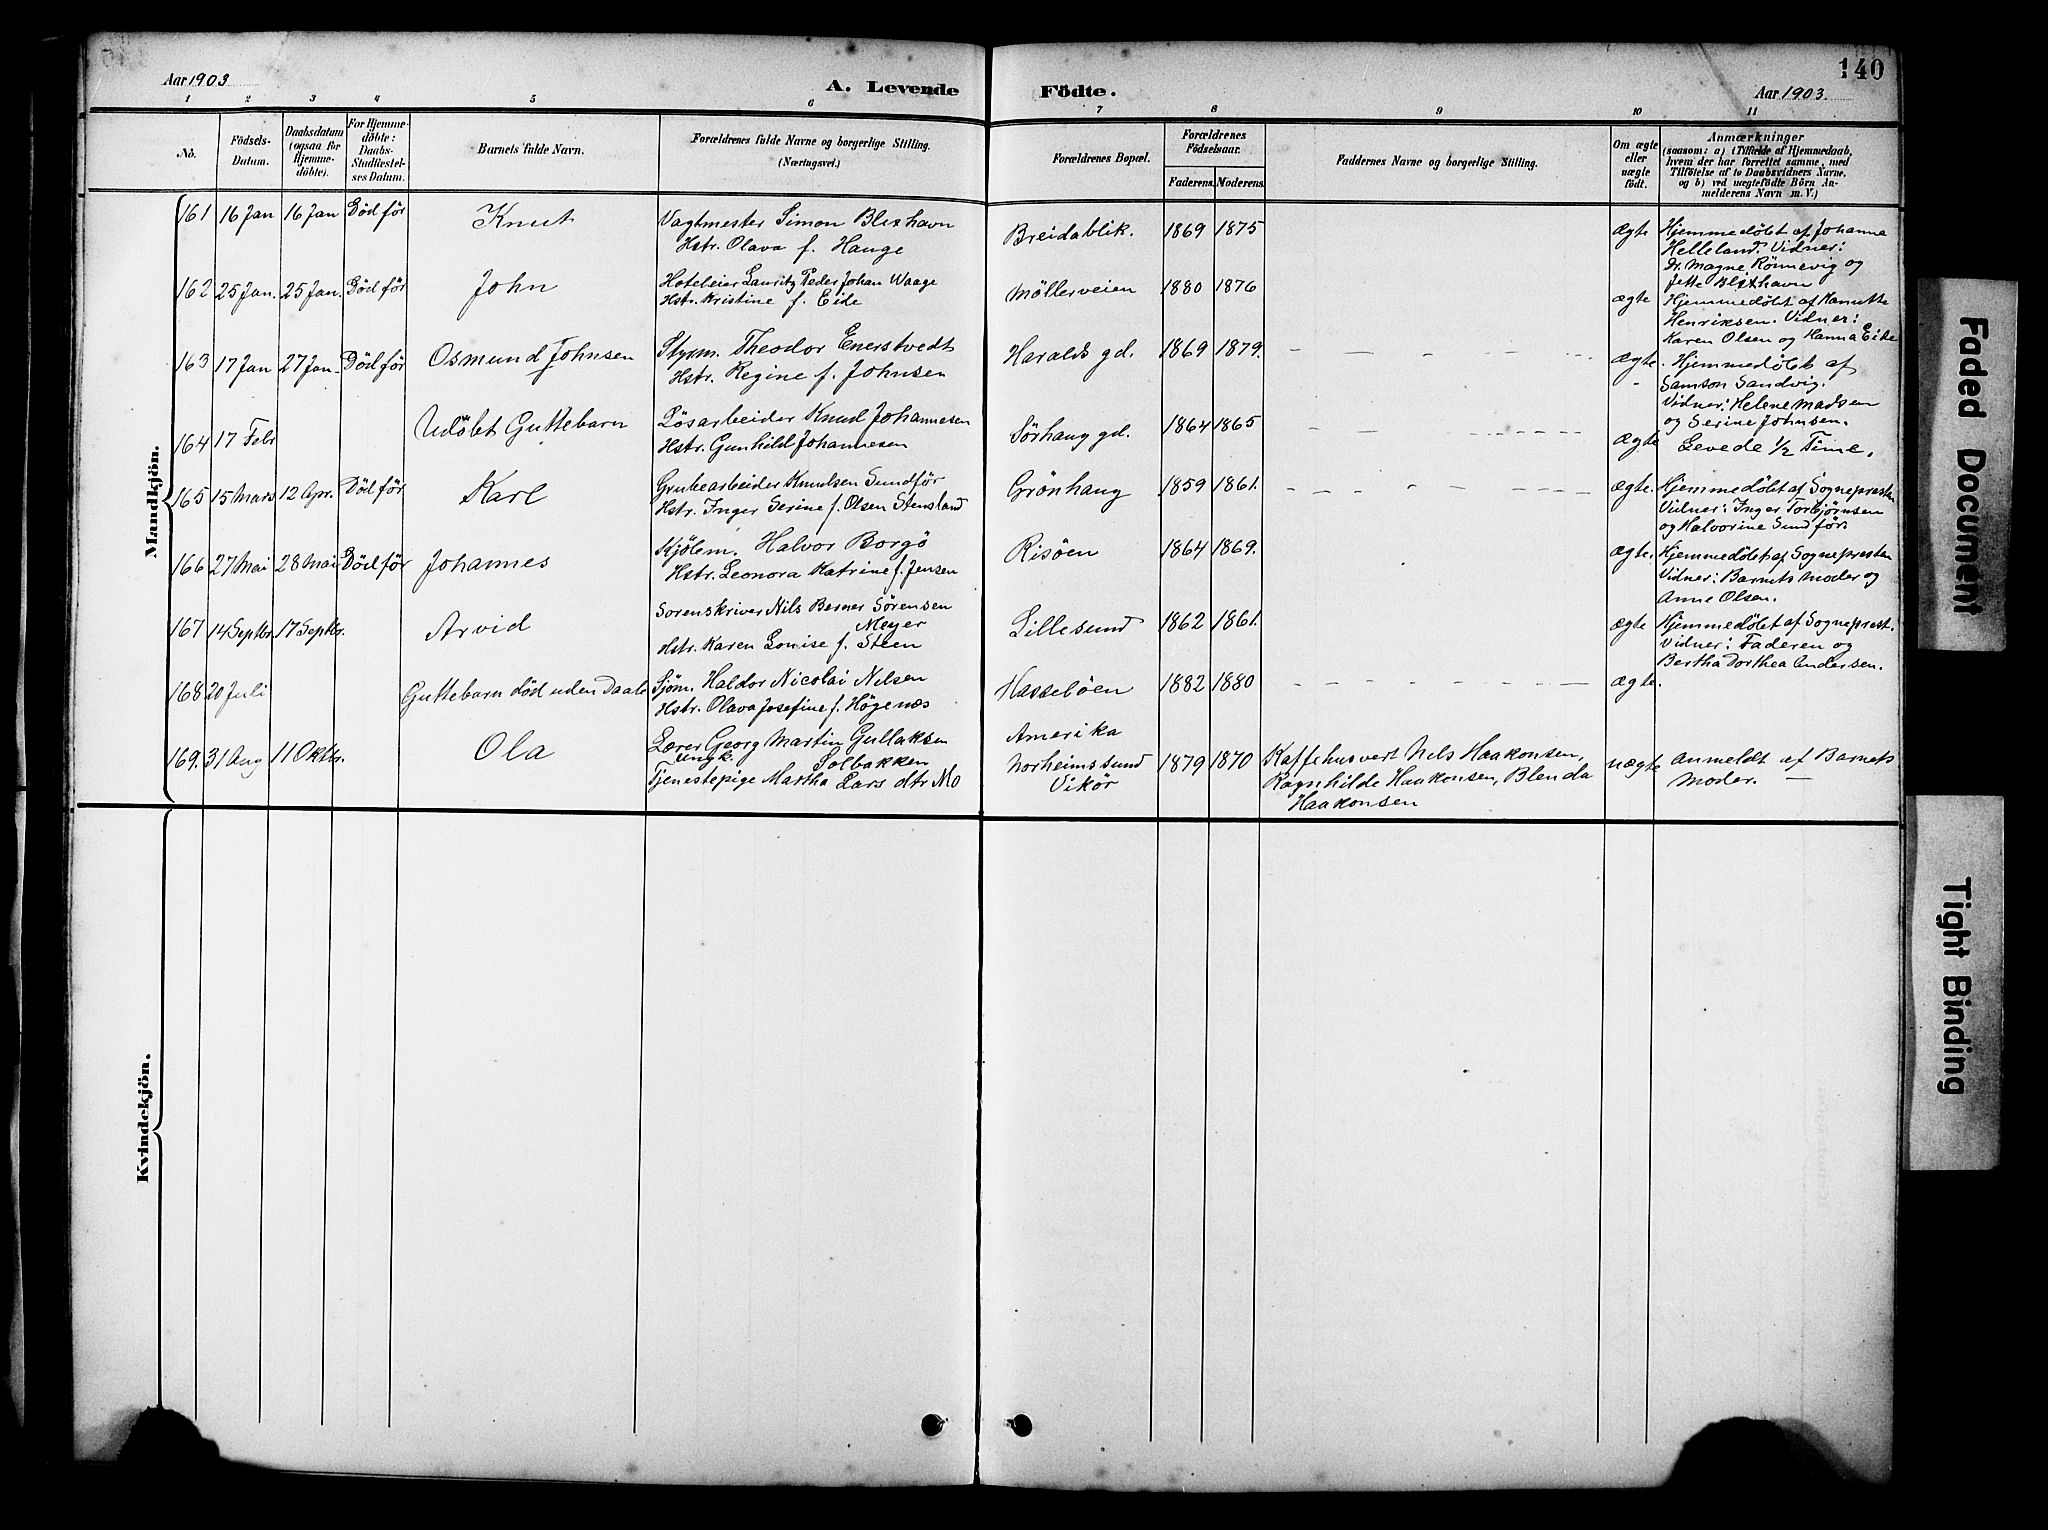 140
Aar 1903
A. Levende
Födte.
Aar 1903.
1 2 3 4 5 6 7 8 9 10 11
No.
Födsels-
Datum.
Daabsdatum
(ogsaa for
Hjemme-
döbte).
For Hjemme-
döbte:
Daabs-
Stadfæstel-
ses Datum.
Barnets fulde Navn.
Forældrenes fulde Navne og borgerlige Stilling.
(Næringsvei.)
Forældrenes Bopæl.
Forældrenes
Födselsaar.
Faderens. Moderens.
Faddernes Navne og borgerlige Stilling.
Om ægte
eller
uægte
födt.
Anmærkninger
(saasom: a) i Tilfælde af Hjemmedaab,
hvem der har forrettet samme, med
Tilföielse af to Daabsvidners Navne,
og b) ved uægtefödte Börn An-
melderens Navn m. V.)
Mandkjön.
161 16 Jan 16 Jan Död før Knut
Vagtmester Simon Blixhavn
Hstr. Olava f. Hauge
Breidablik. 1869 1875
ægte
Hjemmedöbt af Johanne
Helleland. Vidner:
Dr. Magne Rönnevig og
Jette Blixhavn
162 25 Jan. 25 Jan. Död før John
Hoteleier Lauritz Peder Johan Waage
Hstr. Kristine f. Eide
Möllerveien 1880 1876
ægte
Hjemmedöbt af Hanutte
Henriksen. Vidner:
Karen Olsen og Hanna Eide
163 17 Jan 27 Jan. Död før Osmund Johnsen
Styrm. Theodor Enerstvedt
Hstr. Regine f. Johnsen
Haralds gd. 1869 1879.
ægte.
Hjemmedöbt af
Samson Sandvig.
Vidner: Helene Madsen
og Serine Johnsen.
164 17 Febr Udöbt Guttebarn
Lösarbeider Knud Johannesen
Hstr. Gunhild Johannesen
Sörhaug gd. 1864 1865
ægte
Levede 1/2 Time.
165 15 Mars 12 Apr. Död før Karl
Grubearbeider Knudsen Sundför
Hstr. Inger Serine f. Olsen Stensland
Grönhaug 1859 1861.
ægte.
Hjemmedöbt af Sognepresten
Vidner: Inger Torbjørnsen
og Halvorine Sundför.
166 27 Mai 28 Mai Död før Johannes
Kjölem. Halvor Borgö
Hstr. Leonora Katrine f. Jensen
Risöen 1864 1869.
ægte.
Hjemmedöbt af Sognepresten
Vidner: Barnets Moder og
Anne Olsen.
167 14 Septbr. 17 Septbr. Arvid
Sorenskriver Nils Berner Sörensen
Meyer
Hstr. Karen Louise f. Steen
Lillesund 1862 1861.
ægte
Hjemmedöbt af Sogneprest.
Vidner: Faderen og
Bertha Dorthea Andersen.
168 20 Juli Guttebarn död uden Daab
Sjöm. Haldor Nicolai Nilsen
Hstr. Olava Josefine f. Högenæs
Hasselöen 1882 1880
ægte.
169. 31 Aug 11 Oktbr. Ola
Lærer Georg Martin Gullaksen
Ungk. Solbakken
Tjenestepige Martha Lars dtr Mo
Amerika
Norheimssund
Vikör
1879 1870
Kaffehusvert Nils Haakonsen,
Ragnhilde Haakonsen, Blenda
Haakonsen
uægte
Anmeldt af Barnets
Moder. —
Kvindekjön.
Faded Document
Tight Binding